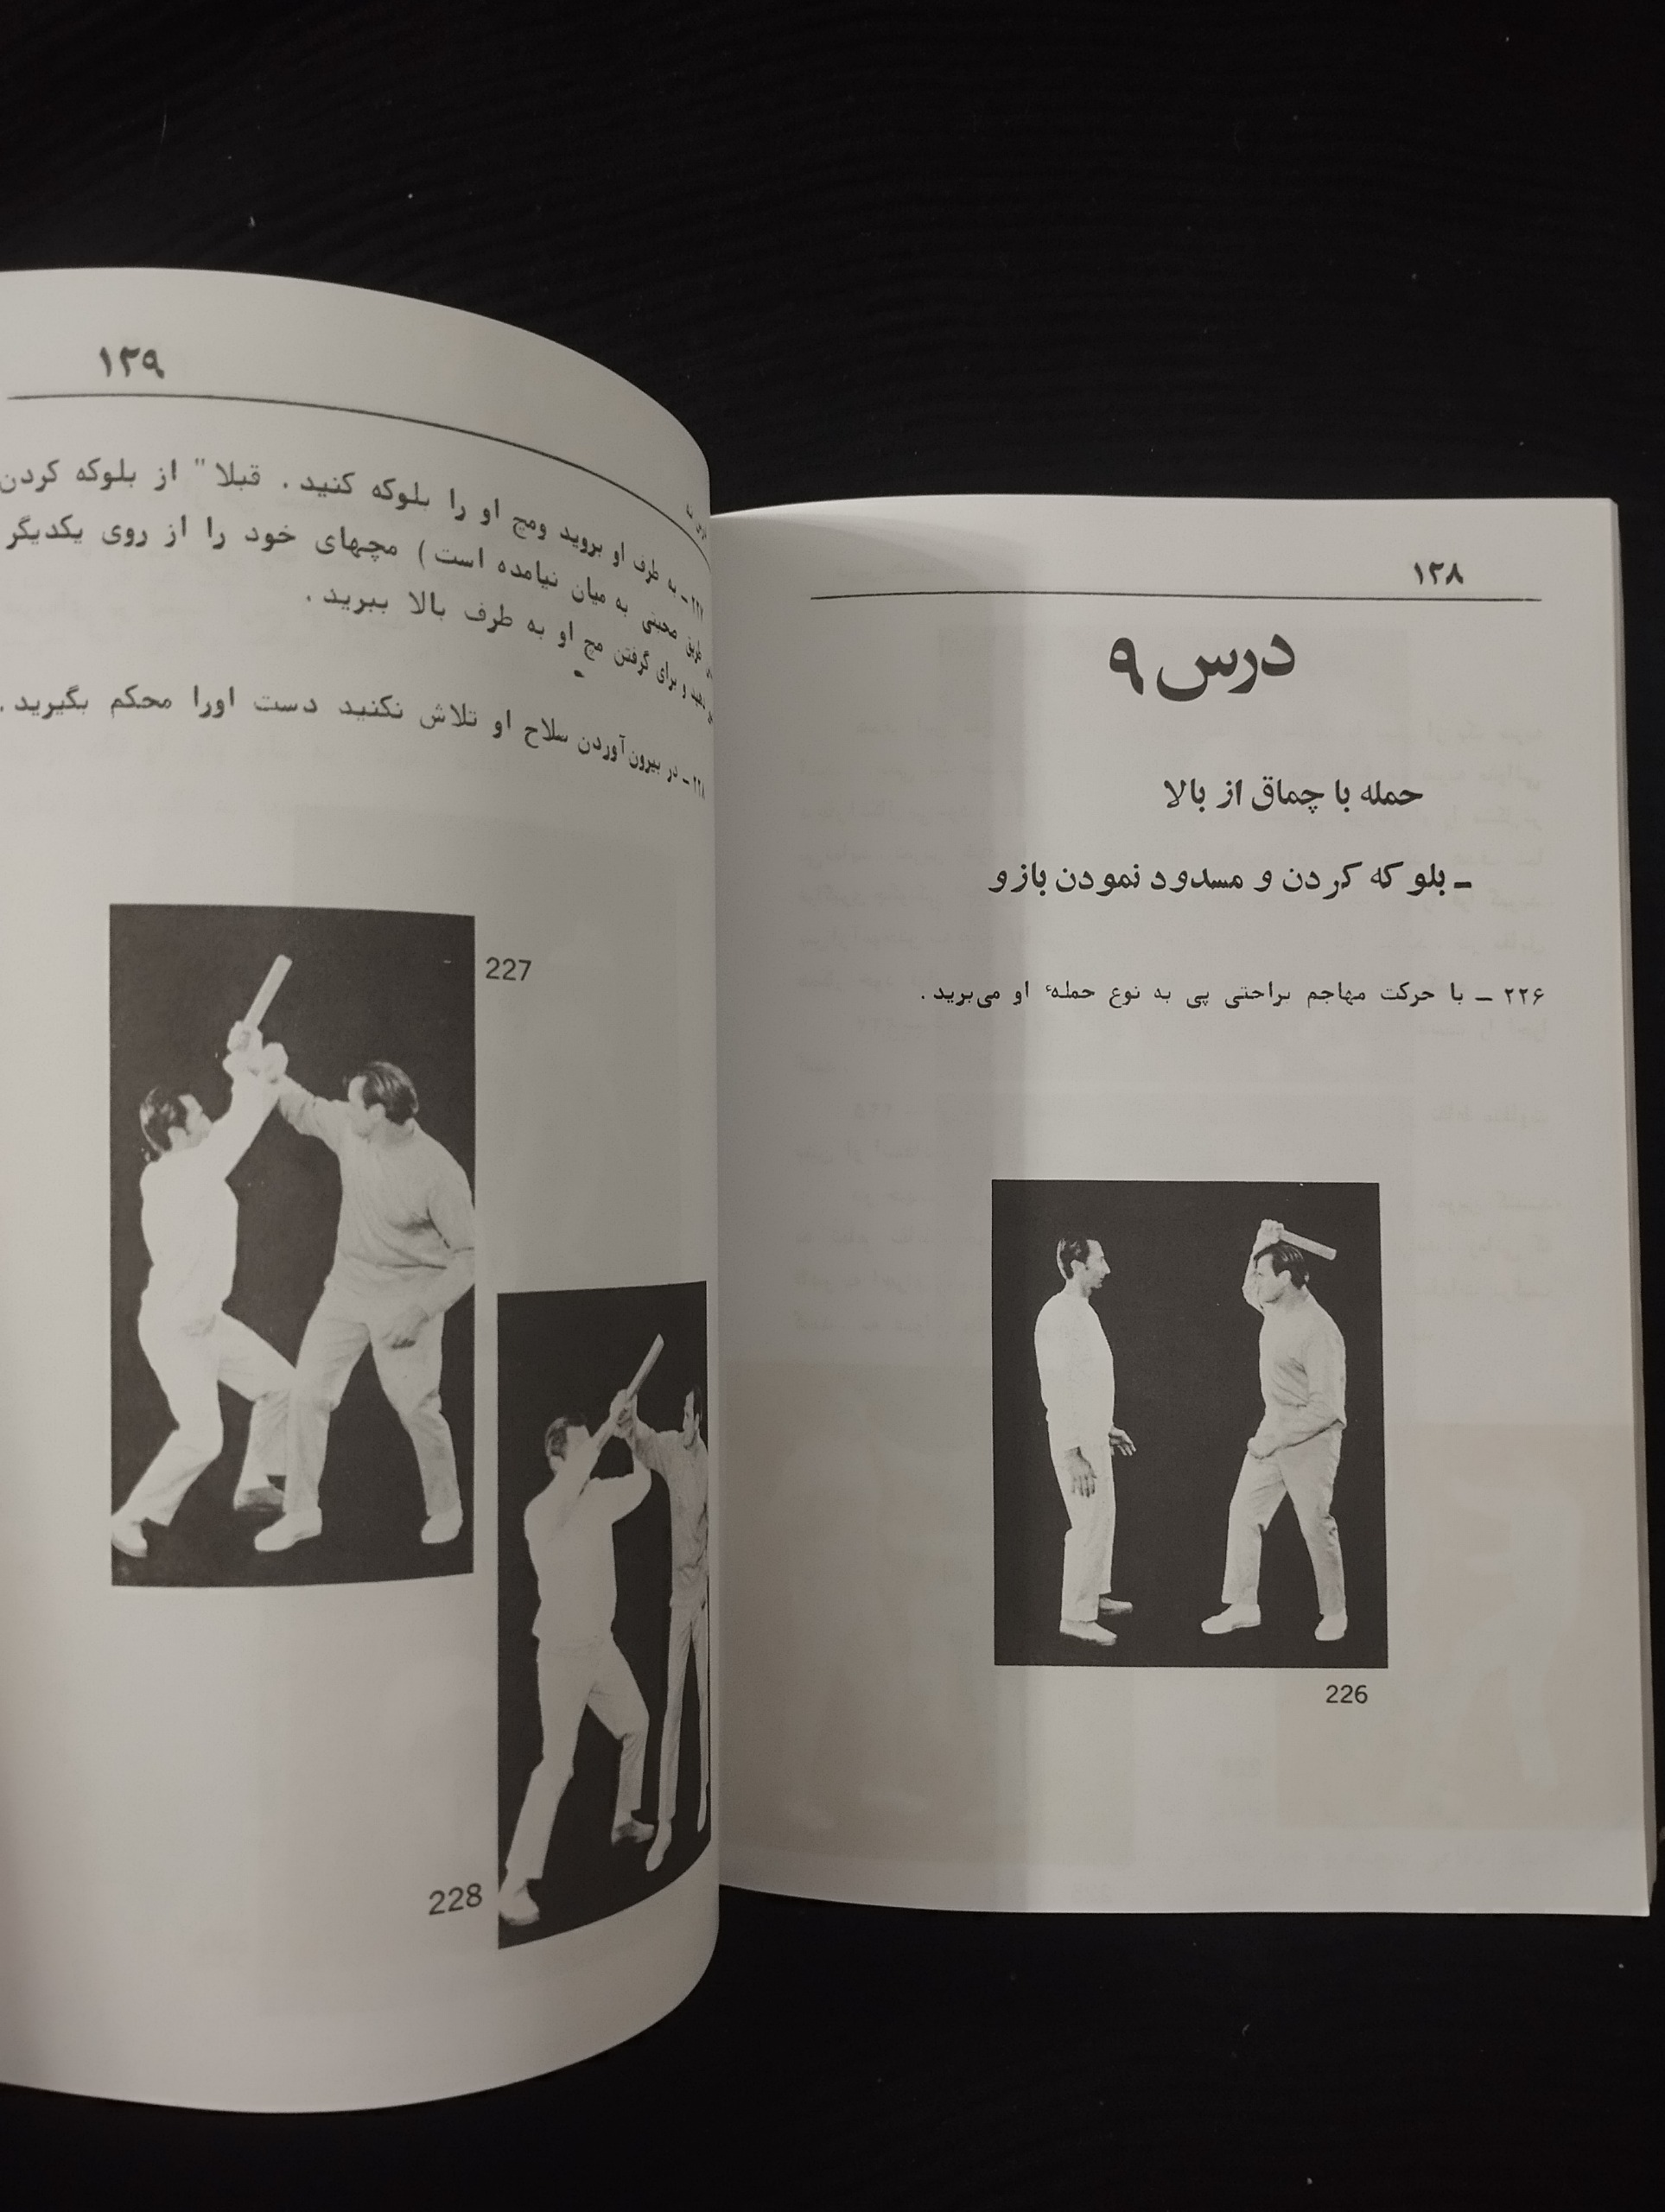 ۱۲۸
درس ۹
حمله با چماق از بالا
ـ بلوکه کردن و مسدود نمودن بازو
۲۲۶ ـ با حرکت مهاجم براحتی پی به نوع حملهٔ او می‌برید.
226
۱۲۹
۲۲۷ ـ به طرف او بروید ومچ او را بلوکه کنید. قبلا" از بلوکه کردن
طریق به میان نیامده است) مچهای خود را از روی یکدیگر
دهید و برای گرفتن مچ او به طرف بالا ببرید.
۲۲۸ ـ در بیرون‌آوردن سلاح او تلاش نکنید دست اورا محکم بگیرید.
227
228